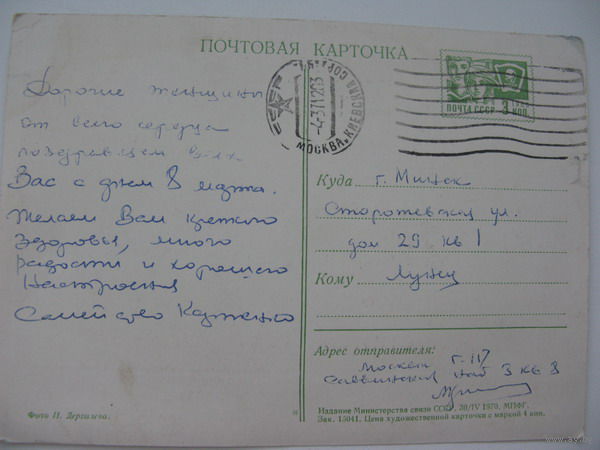 ПОЧТОВАЯ КАРТОЧКА
ПОЧТА СССР 3 КОП.
МОСКВА, КИЕВСКАЯ
-4371 20
Дорогие женщины
от всего сердца
поздравляем
Вас с днем 8 марта.
Желаем Вам крепкого
здоровья, много
радости и хорошего
настроения
Семейство
Куда г. Минск
Сторожевская ул.
дом 29 кв 1
Кому Лунец
Адрес отправителя:
Москва Г-117
Саввинская наб 3 кв 8
Фото П. Дергилева.
Издание Министерства связи СССР. 30/IV 1970. МПФГ.
Зак. 15041. Цена художественной карточки с маркой 4 коп.